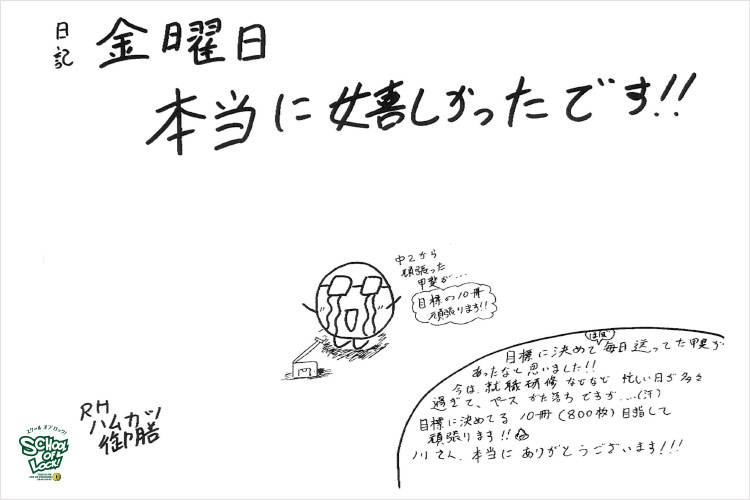 日記
金曜日
本当に嬉しかったです!!
中2から
頑張った
甲斐が...
目標の10冊
頑張ります!!
ほぼ
目標に決めて毎日送ってた甲斐が
あったなと思いました!!
今は、就職研修などなど 忙しい日が多き
過ぎて、ペース がた落ち ですが...(汗)
目標に決めてる 10冊(800枚)目指して
頑張ります!!
本当に ありがとうございます!!!
RH
ハムカツ
御膳
スクール オブ ロック!
SCHOOL
OF
LOCK!